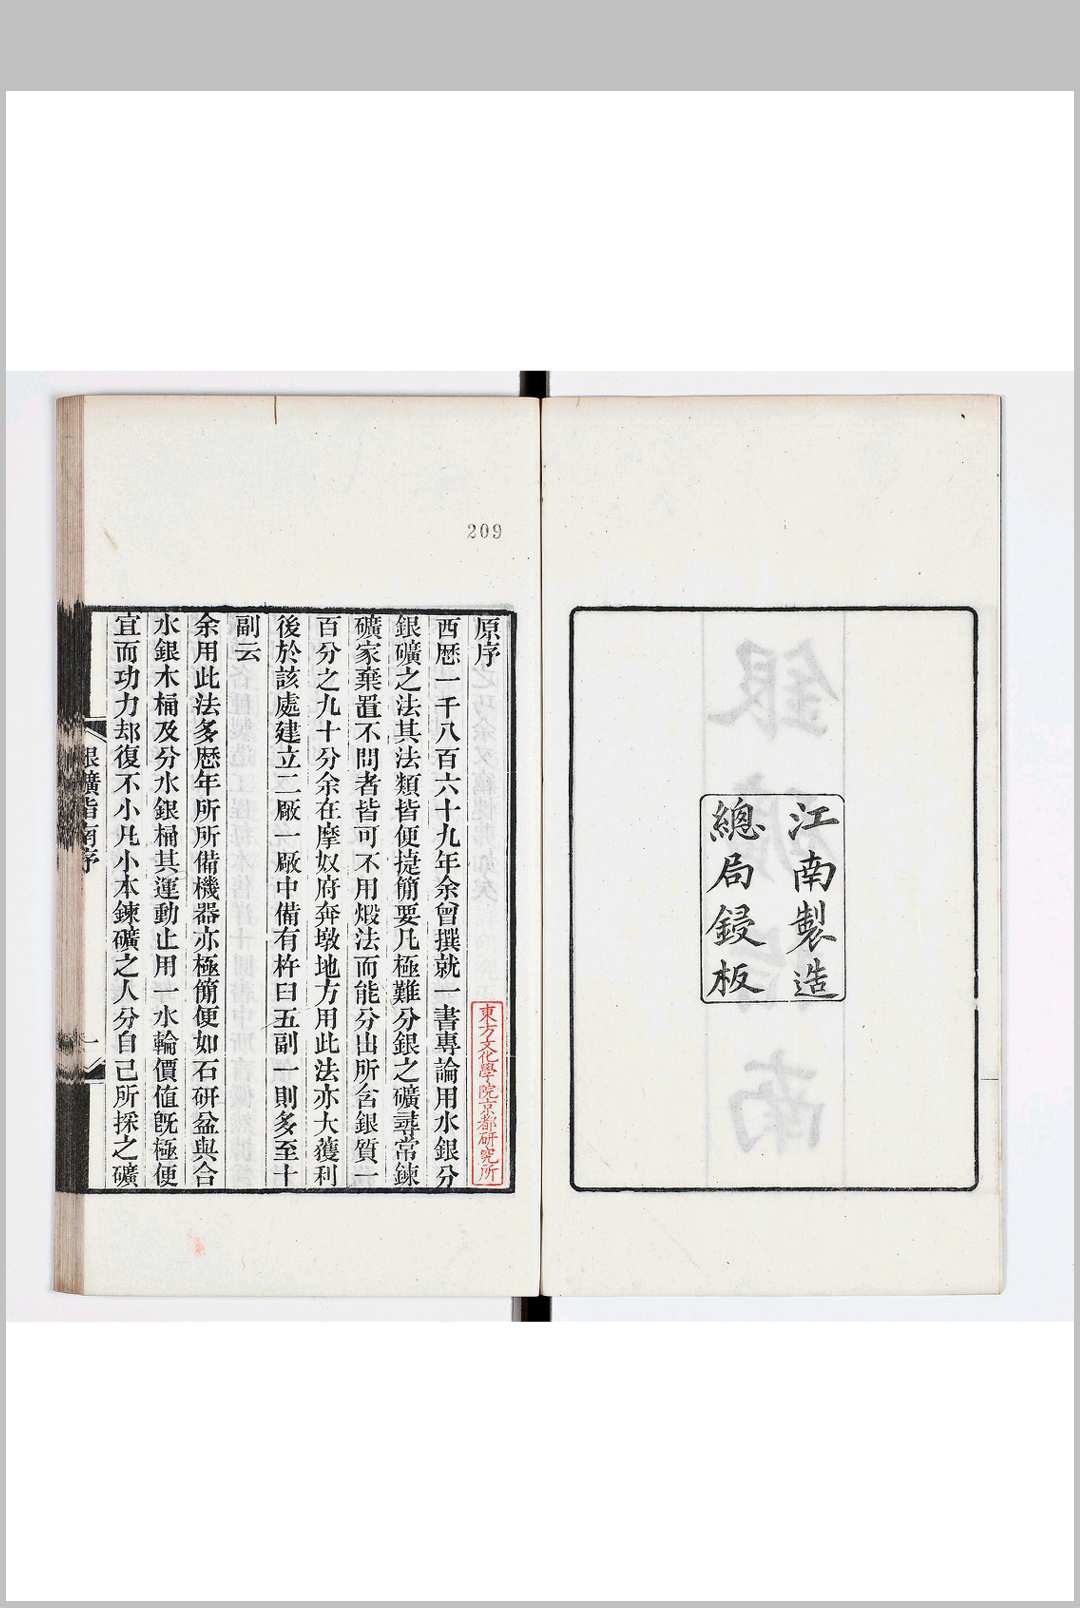 江南製造
總局鋟板
209
原序
西厯一千八百六十九年余曾撰就一書專論用水銀分
銀礦之法其法類皆便捷簡要凡極難分銀之礦尋常鍊
礦家棄置不問者皆可不用煅法而能分出所含銀質一
百分之九十分余在摩奴府奔墩地方用此法亦大獲利
後於該處建立二厰一厰中備有杵臼五副一則多至十
副云
余用此法多歷年所所備機器亦極簡便如石研盆與合
水銀木桶及分水銀桶其運動止用一水輪價値旣極便
宜而功力却復不小凡小本鍊礦之人分自己所採之礦
銀礦指南序
一
東方文化學院京都研究所